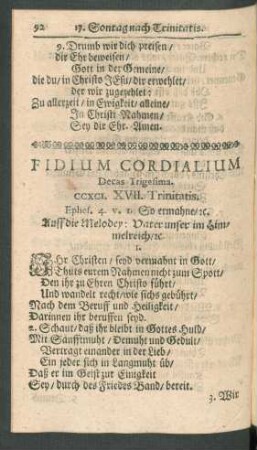 92 17. Sontag nach Trinitatis.
9. Drumb wir dich preisen/
dir Ehr beweisen/
Gott in der Gemeine/
die du/ in Christo JEsu/ dir erwehlet/
der wir zugezehlet:
Zu allerzeit/ in Ewigkeit/ alleine/
In Christi Nahmen/
Sey dir Ehr. Amen.
FIDIUM CORDIALIUM
Decas Trigesima.
CCXCI. XVII. Trinitatis.
Ephes. 4. v. 1. So ermahne/ꝛc.
Auff die Melodey: Vater unser im Him-
melreich/ꝛc.
1.
IHr Christen/ seyd vermahnt in Gott/
Thuts eurem Nahmen nicht zum Spott/
Den ihr zu Ehren Christo führt/
Und wandelt recht/ wie sichs gebührt/
Nach dem Beruff und Heiligkeit/
Darinnen ihr beruffen seyd.
2. Schaut/ daß ihr bleibt in Gottes Huld/
Mit Säufftmuht/ Demuht und Gedult/
Vertragt einander in der Lieb/
Ein jeder sich in Langmuht üb/
Daß er im Geist zur Einigkeit
Sey/ durch des Friedes Band/ bereit.
3. Wir